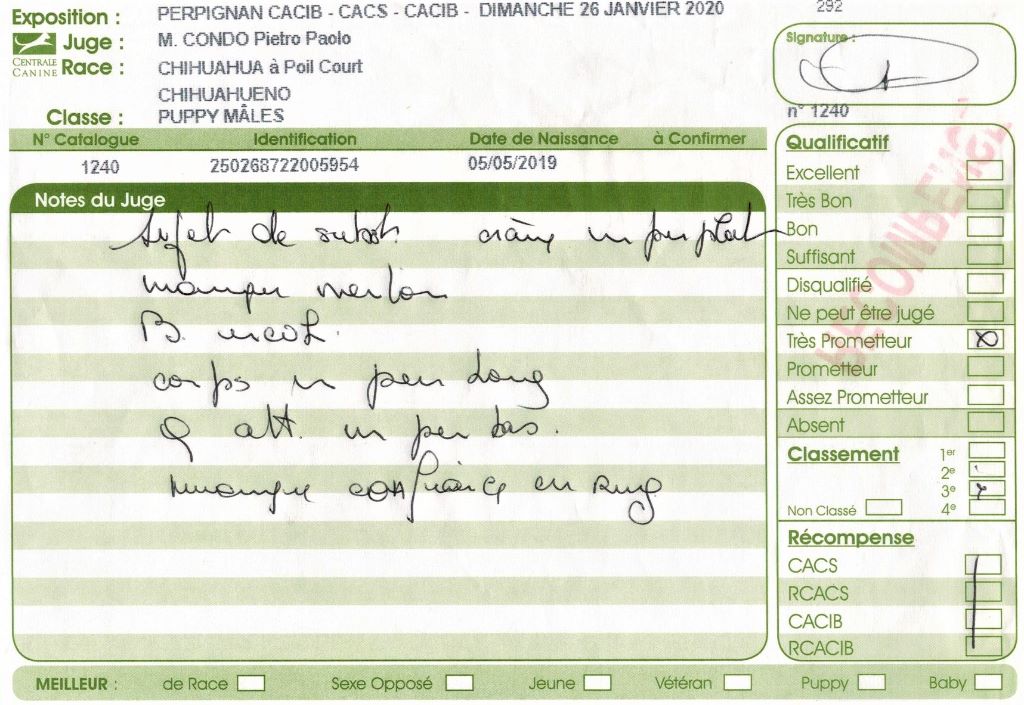 Exposition : PERPIGNAN CACIB - CACS - CACIB - DIMANCHE 26 JANVIER 2020
292
Juge : M. CONDO Pietro Paolo
Signature :
CENTRALE CANINE
Race : CHIHUAHUA à Poil Court
CHIHUAHUENO
Classe : PUPPY MÂLES
n° 1240
N° Catalogue Identification Date de Naissance à Confirmer
1240 250268722005954 05/05/2019
Notes du Juge
sujet de subst. crâne un peu plat
manque
B.
corps un peu long
Q att. un peu bas.
manque confiance en ring
Qualificatif
Excellent
Très Bon
Bon
Suffisant
Disqualifié
Ne peut être jugé
Très Prometteur X
Prometteur
Assez Prometteur
Absent
Classement
1er
2e
3e
4e
Non Classé
Récompense
CACS
RCACS
CACIB
RCACIB
RECOMPENSE
MEILLEUR : de Race Sexe Opposé Jeune Vétéran Puppy Baby